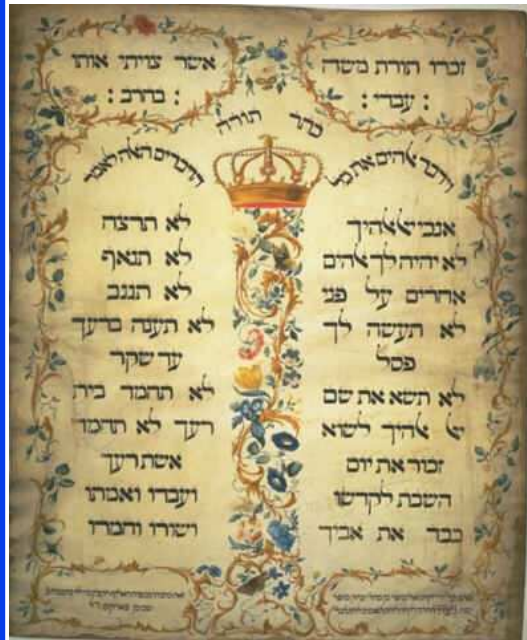 זכרו תורת משה
עבדי :
אשר צויתי אותו
: בחרב :
כתר תורה
וידבר אהים את כל
הדברים האלה לאמר
אנכי יי אהיך
לא יהיה לך אהים
אחרים על פני
לא תעשה לך
פסל
לא תשא את שם
יי אהיך לשוא
זכור את יום
השבת לקדשו
כבד את אביך
לא תרצח
לא תנאף
לא תגנב
לא תענה ברעך
עד שקר
לא תחמד בית
רעך לא תחמד
אשת רעך
ועבדו ואמתו
ושורו וחמרו